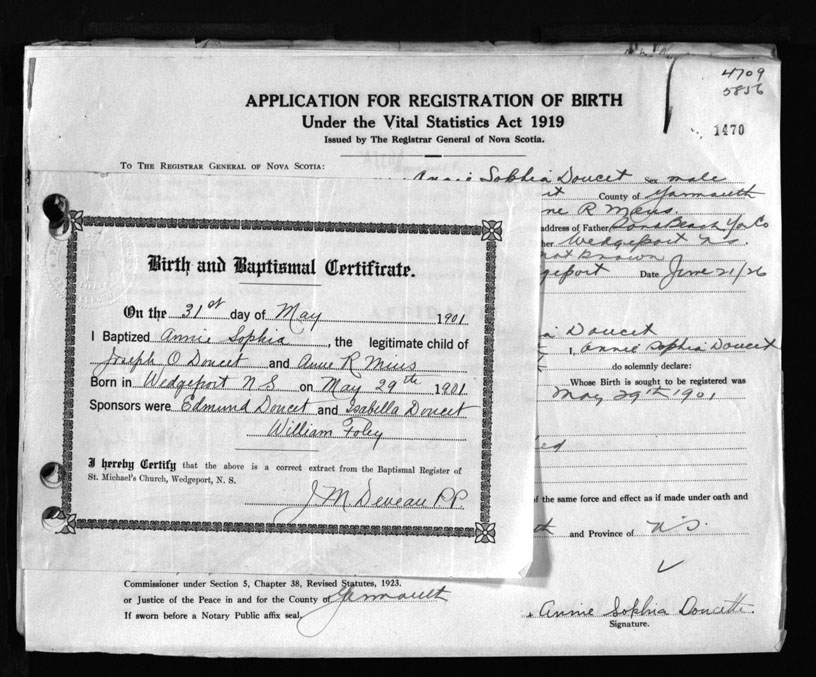 4709
5856
1470
APPLICATION FOR REGISTRATION OF BIRTH
Under the Vital Statistics Act 1919
Issued by The Registrar General of Nova Scotia.
TO THE REGISTRAR GENERAL OF NOVA SCOTIA:
Annie Sophia Doucet Sex male
County of Yarmouth
ne R Mius.
address of Father Comeau's Yar Co
her Wedgeport N.S.
not known
geport Date June 21/26
Doucet
I, Annie Sophia Doucet
do solemnly declare:
Whose Birth is sought to be registered was
May 29th 1901
ed
of the same force and effect as if made under oath and
th and Province of N.S.
Birth and Baptismal Certificate.
On the 31st day of May 1901
I Baptized Annie Sophia, the legitimate child of
Joseph O Doucet and Anne R Mius
Born in Wedgeport N S on May 29th 1901
Sponsors were Edmund Doucet and Isabella Doucet
William Foley
I hereby Certify that the above is a correct extract from the Baptismal Register of
St. Michael's Church, Wedgeport, N. S.
J M Deveau P.P.
Commissioner under Section 5, Chapter 38, Revised Statutes, 1923.
or Justice of the Peace in and for the County of Yarmouth
If sworn before a Notary Public affix seal,
Annie Sophia Doucette.
Signature.